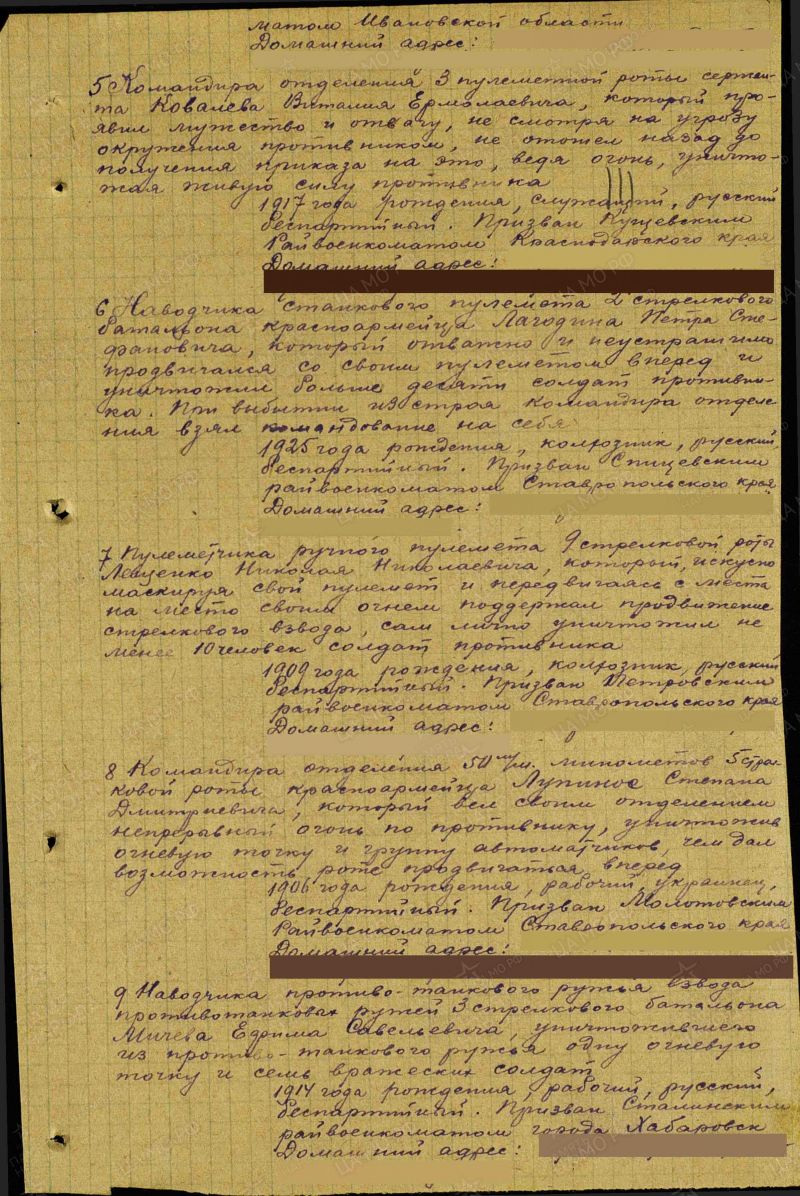 матом Ивановской области
Домашний адрес:
5 Командира отделения 3 пулеметной роты сержан-
та Ковалева Виталия Ермолаевича, который про-
явил мужество и отвагу, не смотря на угрозу
окружения противником, не отошел назад до
получения приказа на это, ведя огонь, уничто-
жая живую силу противника
1917 года рождения, служащий, русский
беспартийный. Призван Кущевским
Райвоенкоматом Краснодарского края
Домашний адрес:
6 Наводчика станкового пулемета 2 стрелкового
батальона красноармейца Лагодина Петра Сте-
фановича, который отважно и неустрашимо
продвигался со своим пулеметом вперед и
уничтожил больше десяти солдат противни-
ка. При выбытии из строя командира отделе
ния взял командование на себя
1925 года рождения, колхозник, русский,
беспартийный. Призван Спицевским
райвоенкоматом Ставропольского края
Домашний адрес:
7 Пулеметчика ручного пулемета 9 стрелковой роты
Левченко Николая Николаевича, который, искусно
маскируя свой пулемет и передвигаясь с места
на место своим огнем поддержал продвижение
стрелкового взвода, сам лично уничтожил не
менее 10 человек солдат противника
1909 года рождения, колхозник, русский
беспартийный. Призван Петровским
райвоенкоматом Ставропольского края
Домашний адрес:
8 Командира отделения 50 м/м. минометов 5 стрел
ковой роты красноармейца Лупинос Степана
Дмитриевича, который вел своим отделением
непрерывный огонь по противнику, уничтожив
огневую точку и группу автоматчиков, чем дал
возможность роте продвигаться вперед
1906 года рождения, рабочий, украинец,
беспартийный. Призван Молотовским
Райвоенкоматом Ставропольского края
Домашний адрес:
9 Наводчика противо-танкового ружья взвода
противотанковых ружей 3 стрелкового батальона
Мичева Ефрима Савельевича, уничтожившего
из противо-танкового ружья одну огневую
точку и семь вражеских солдат
1914 года рождения, рабочий, русский,
беспартийный. Призван Сталинским
райвоенкоматом города Хабаровск
Домашний адрес: